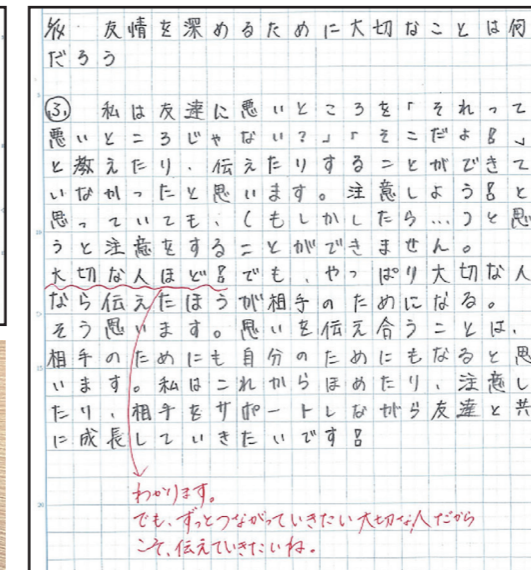 1/18 友情を深めるために大切なことは何
だろう
ふ 私は友達に悪いところを「それって
悪いところじゃない?」「そこだよ!!」
と教えたり、伝えたりすることができて
いなかったと思います。注意しよう!!と
思っていても、(もしかしたら...)と思
うと注意をすることができません。
大切な人ほど!!でも、やっぱり大切な人
なら伝えたほうが相手のためになる。
そう思います。思いを伝え合うことは、
相手のためにも自分のためにもなると思
います。私はこれからほめたり、注意し
たり、相手をサポートしながら友達と共
に成長していきたいです!!
わかります。
でも、ずっとつながっていきたい大切な人だから
こそ、伝えていきたいね。